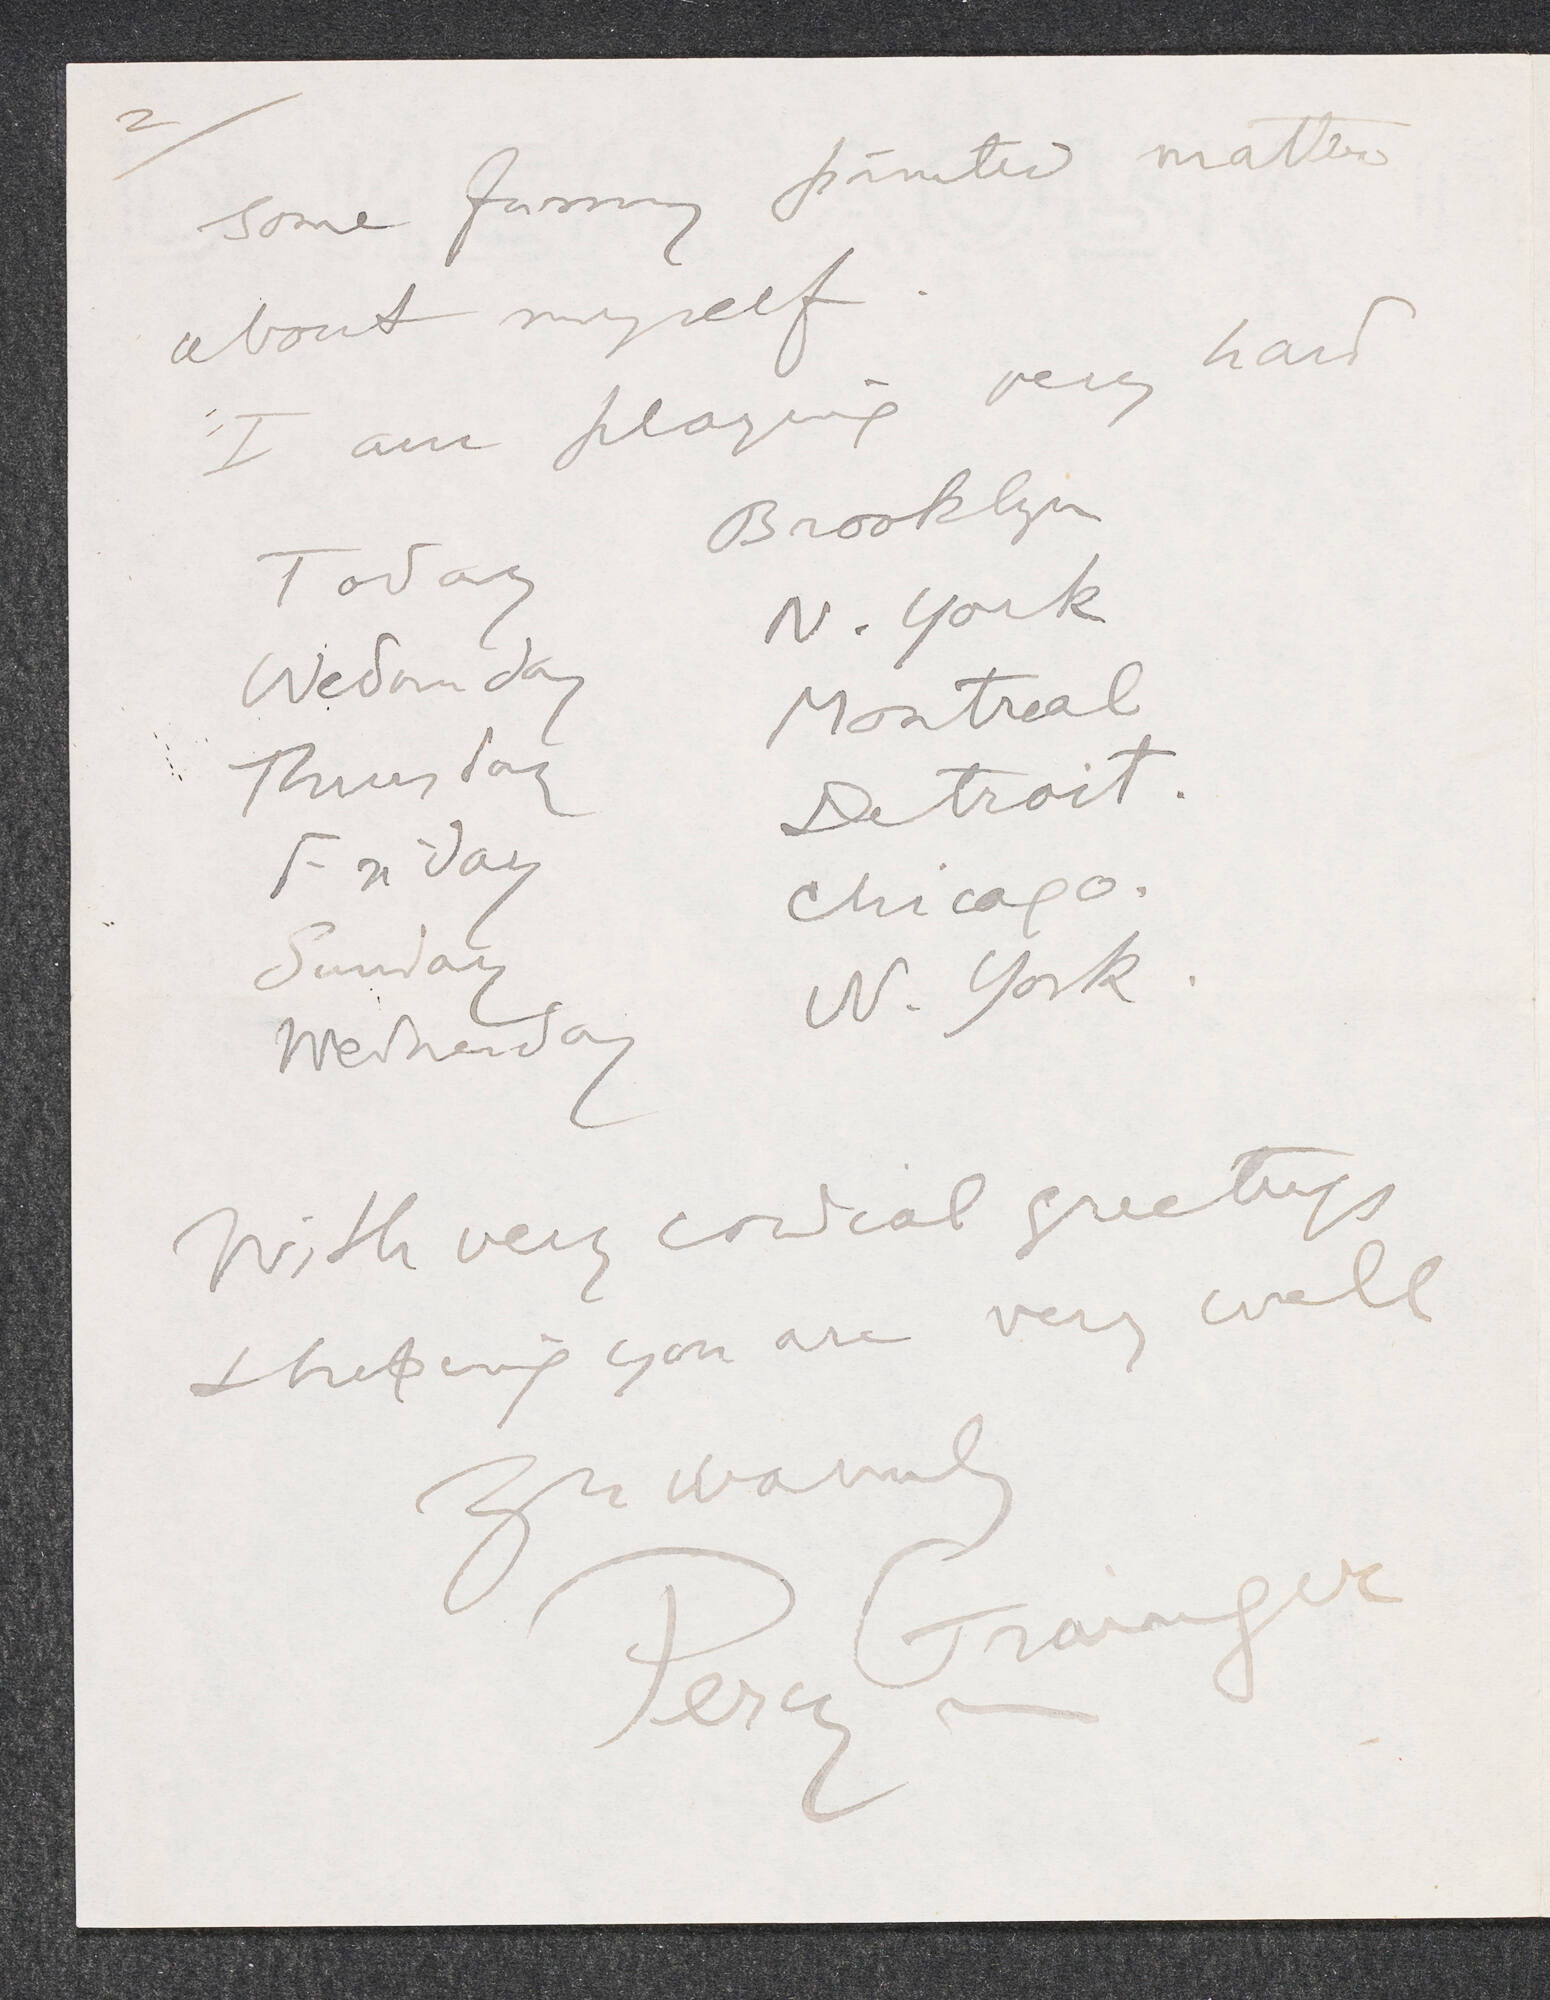 2/
some funny printed matter
about myself.
I am playing very hard
Today Brooklyn
Wednesday N. York
Thursday Montreal
Friday Detroit.
Sunday Chicago.
Wednesday N. York.
With very cordial greetings
& hoping you are very well
Yrs warmly
Percy Grainger